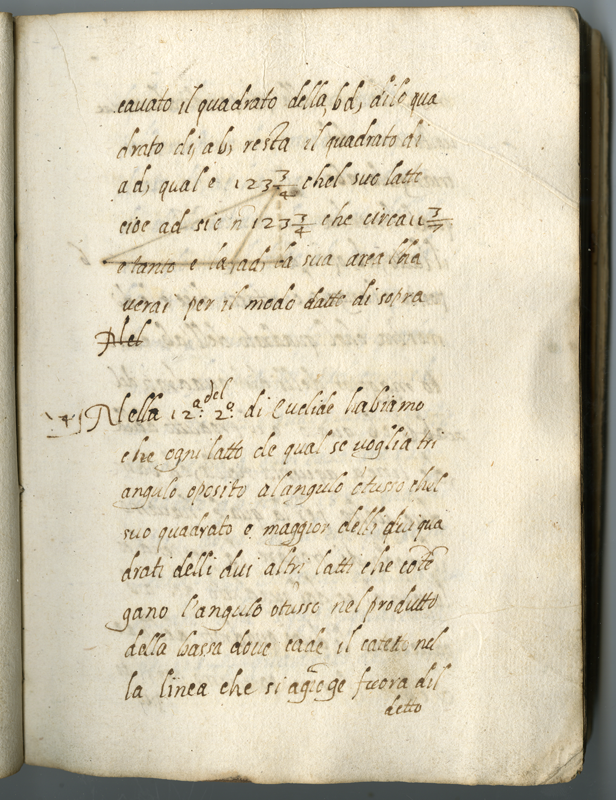 cavato il quadrato della bd, dilo qua
drato di ab, resta il quadrato di
ad, qual e 123 3/4 chel suo latte
cioe ad sie 123 3/4 che circa 11 3/7
e tanto e la ad, la sua area
verai per il modo datto di sopra
Nel
4 Nella 12ª del 2º di Euclide habiamo
che ogni latto de qual se voglia tri
angulo oposito al angulo otusso chel
suo quadrato e maggior delli dui qua
drati delli dui altri latti che cōtē
gano l'angulo otusso nel produtto
della bassa dove cade il catetto nel
la linea che si agiōge fuora dil
detto